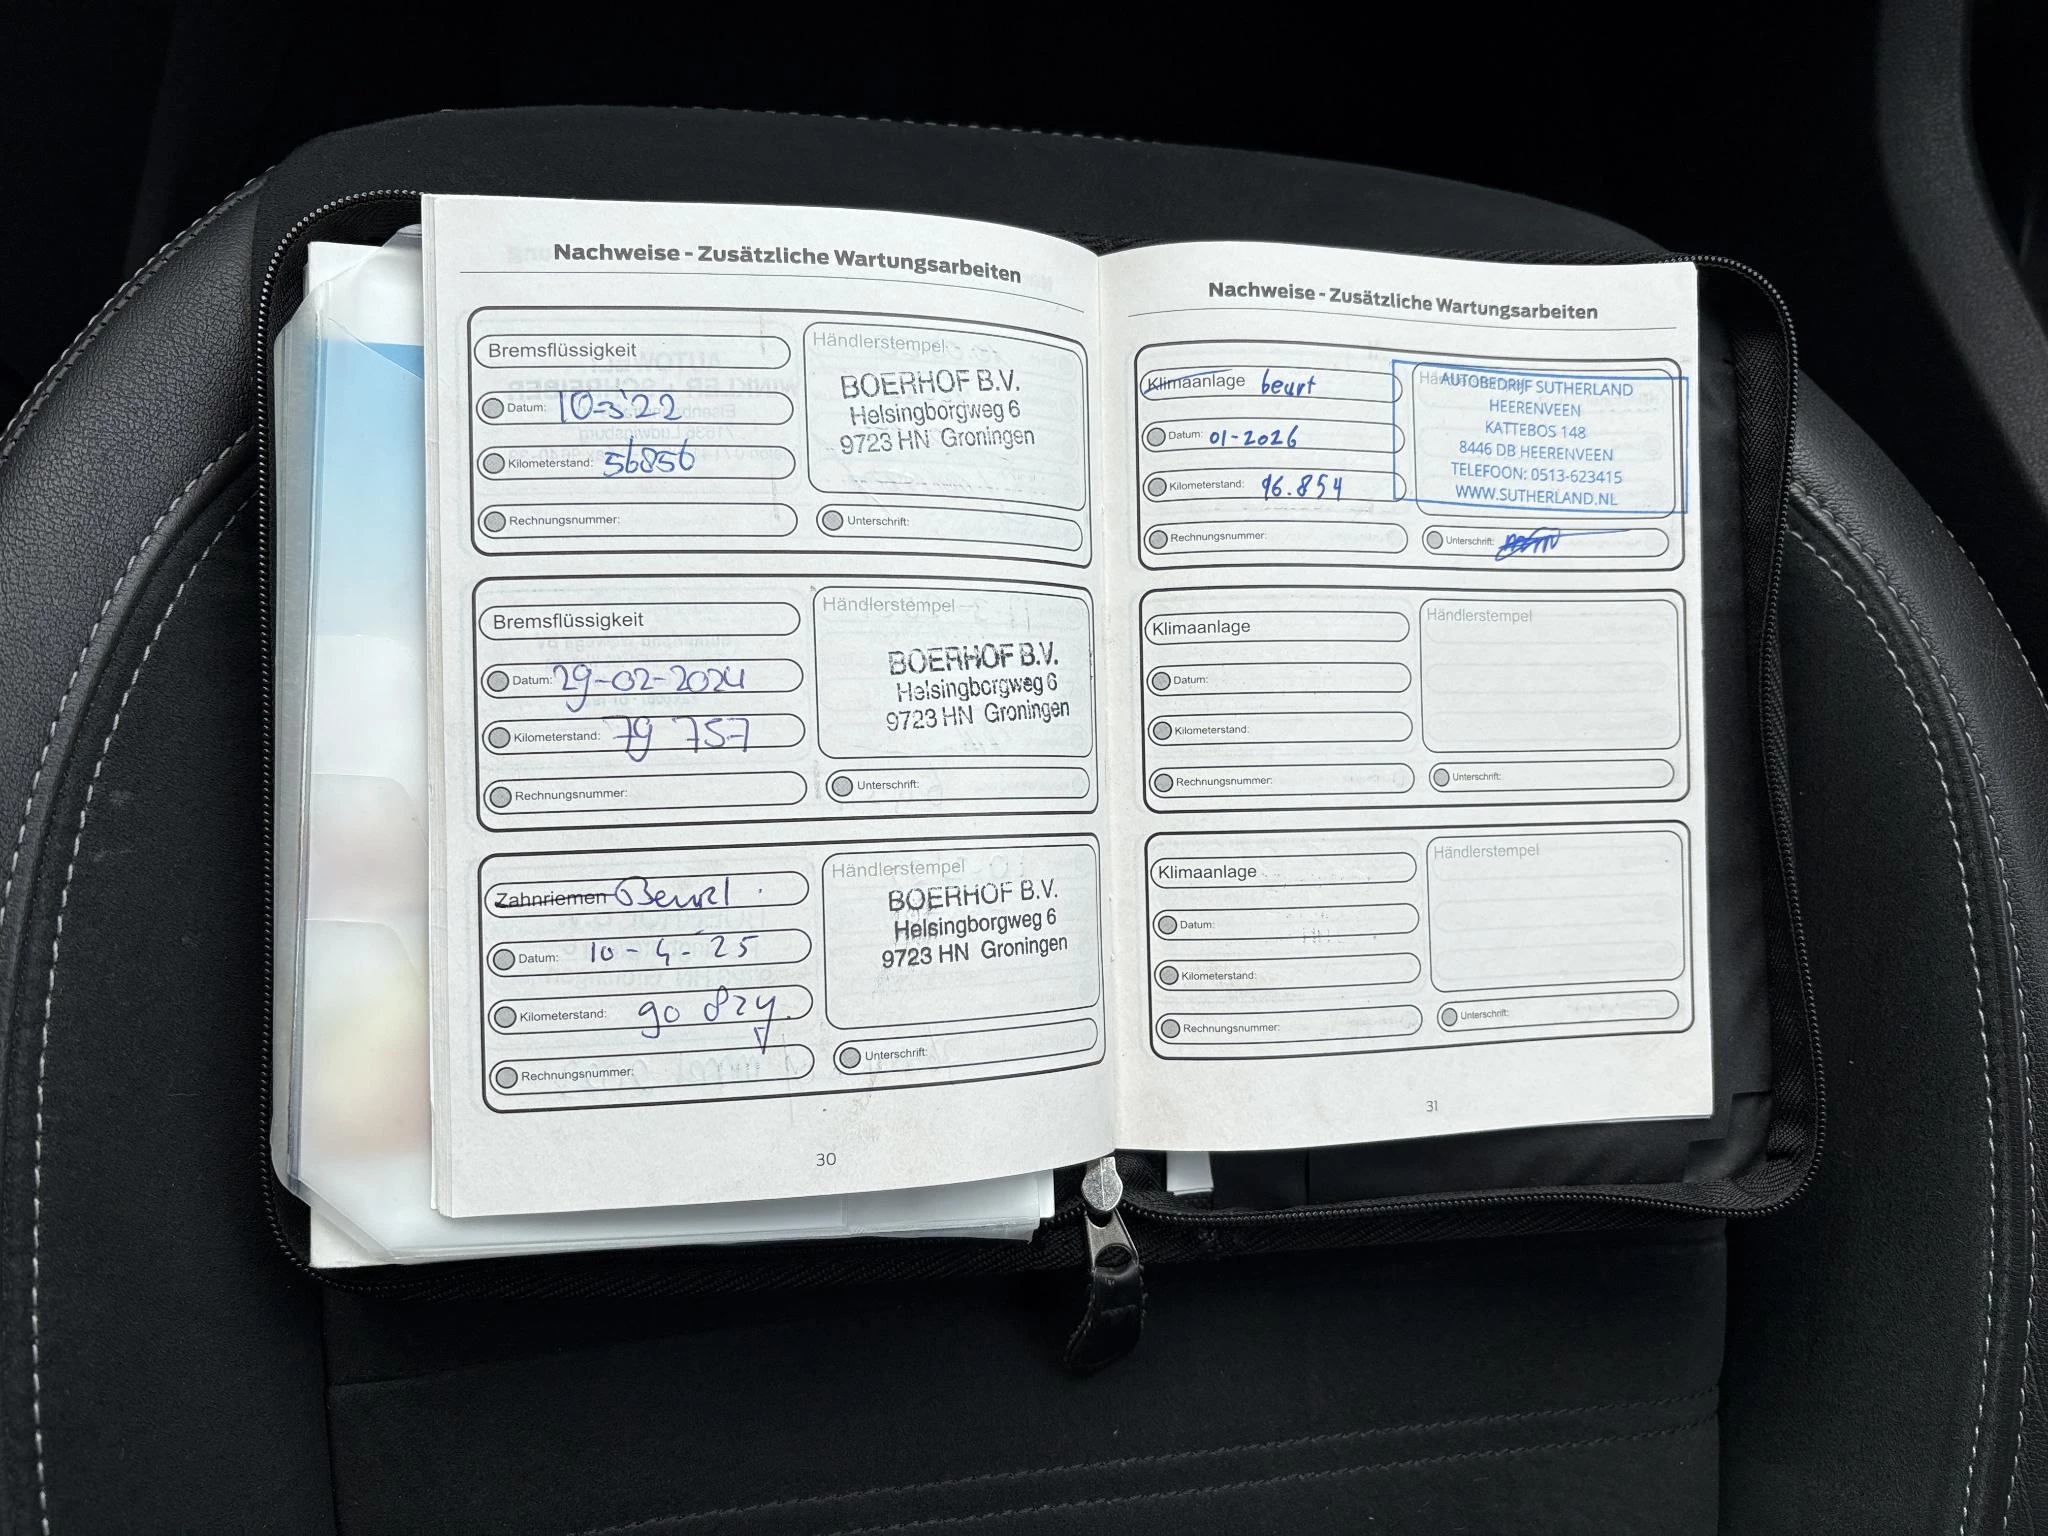 Nachweise - Zusätzliche Wartungsarbeiten
Bremsflüssigkeit
Datum: 10-3'22
Kilometerstand: 56856
Rechnungsnummer:
Händlerstempel
BOERHOF B.V.
Helsingborgweg 6
9723 HN Groningen
Unterschrift:
Bremsflüssigkeit
Datum: 29-02-2024
Kilometerstand: 79 757
Rechnungsnummer:
Händlerstempel
BOERHOF B.V.
Helsingborgweg 6
9723 HN Groningen
Unterschrift:
Zahnriemen Beurt
Datum: 10-4-25
Kilometerstand:
Rechnungsnummer:
Händlerstempel
BOERHOF B.V.
Helsingborgweg 6
9723 HN Groningen
Unterschrift:
30
Nachweise - Zusätzliche Wartungsarbeiten
Klimaanlage beurt
Datum: 01-2026
Kilometerstand: 96.854
Rechnungsnummer:
AUTOBEDRIJF SUTHERLAND
HEERENVEEN
KATTEBOS 148
8446 DB HEERENVEEN
TELEFOON: 0513-623415
WWW.SUTHERLAND.NL
Unterschrift:
Klimaanlage
Datum:
Kilometerstand:
Rechnungsnummer:
Händlerstempel
Unterschrift:
Klimaanlage
Datum:
Kilometerstand:
Rechnungsnummer:
Händlerstempel
Unterschrift:
31